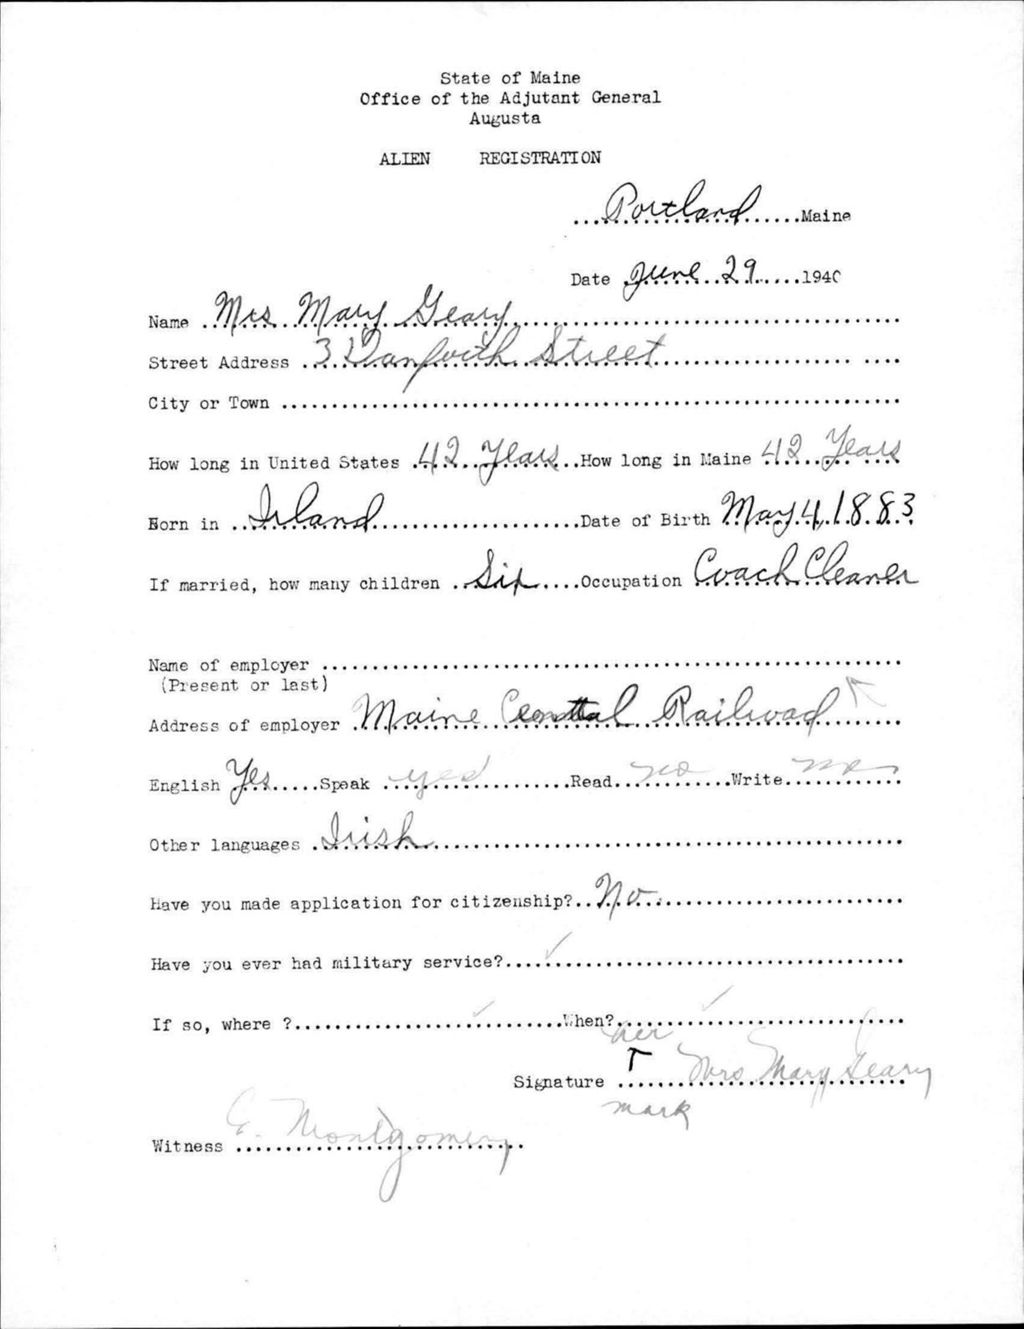 State of Maine
Office of the Adjutant General
Augusta
ALIEN REGISTRATION
Portland Maine
Date June 29 1940
Name Mrs Mary Geary
Street Address 32 Danforth Street
City or Town
How long in United States 42 Years How long in Maine 42 Years
Born in Irland Date of Birth May 4, 1883
If married, how many children Six Occupation Coach Cleaner
Name of employer
(Present or last)
Address of employer Maine Central Railroad
English Yes Speak yes Read no Write no
Other languages Irish
Have you made application for citizenship? No
Have you ever had military service?
If so, where ? When?
her
Signature Mrs Mary Geary
mark
Witness E. Montgomery